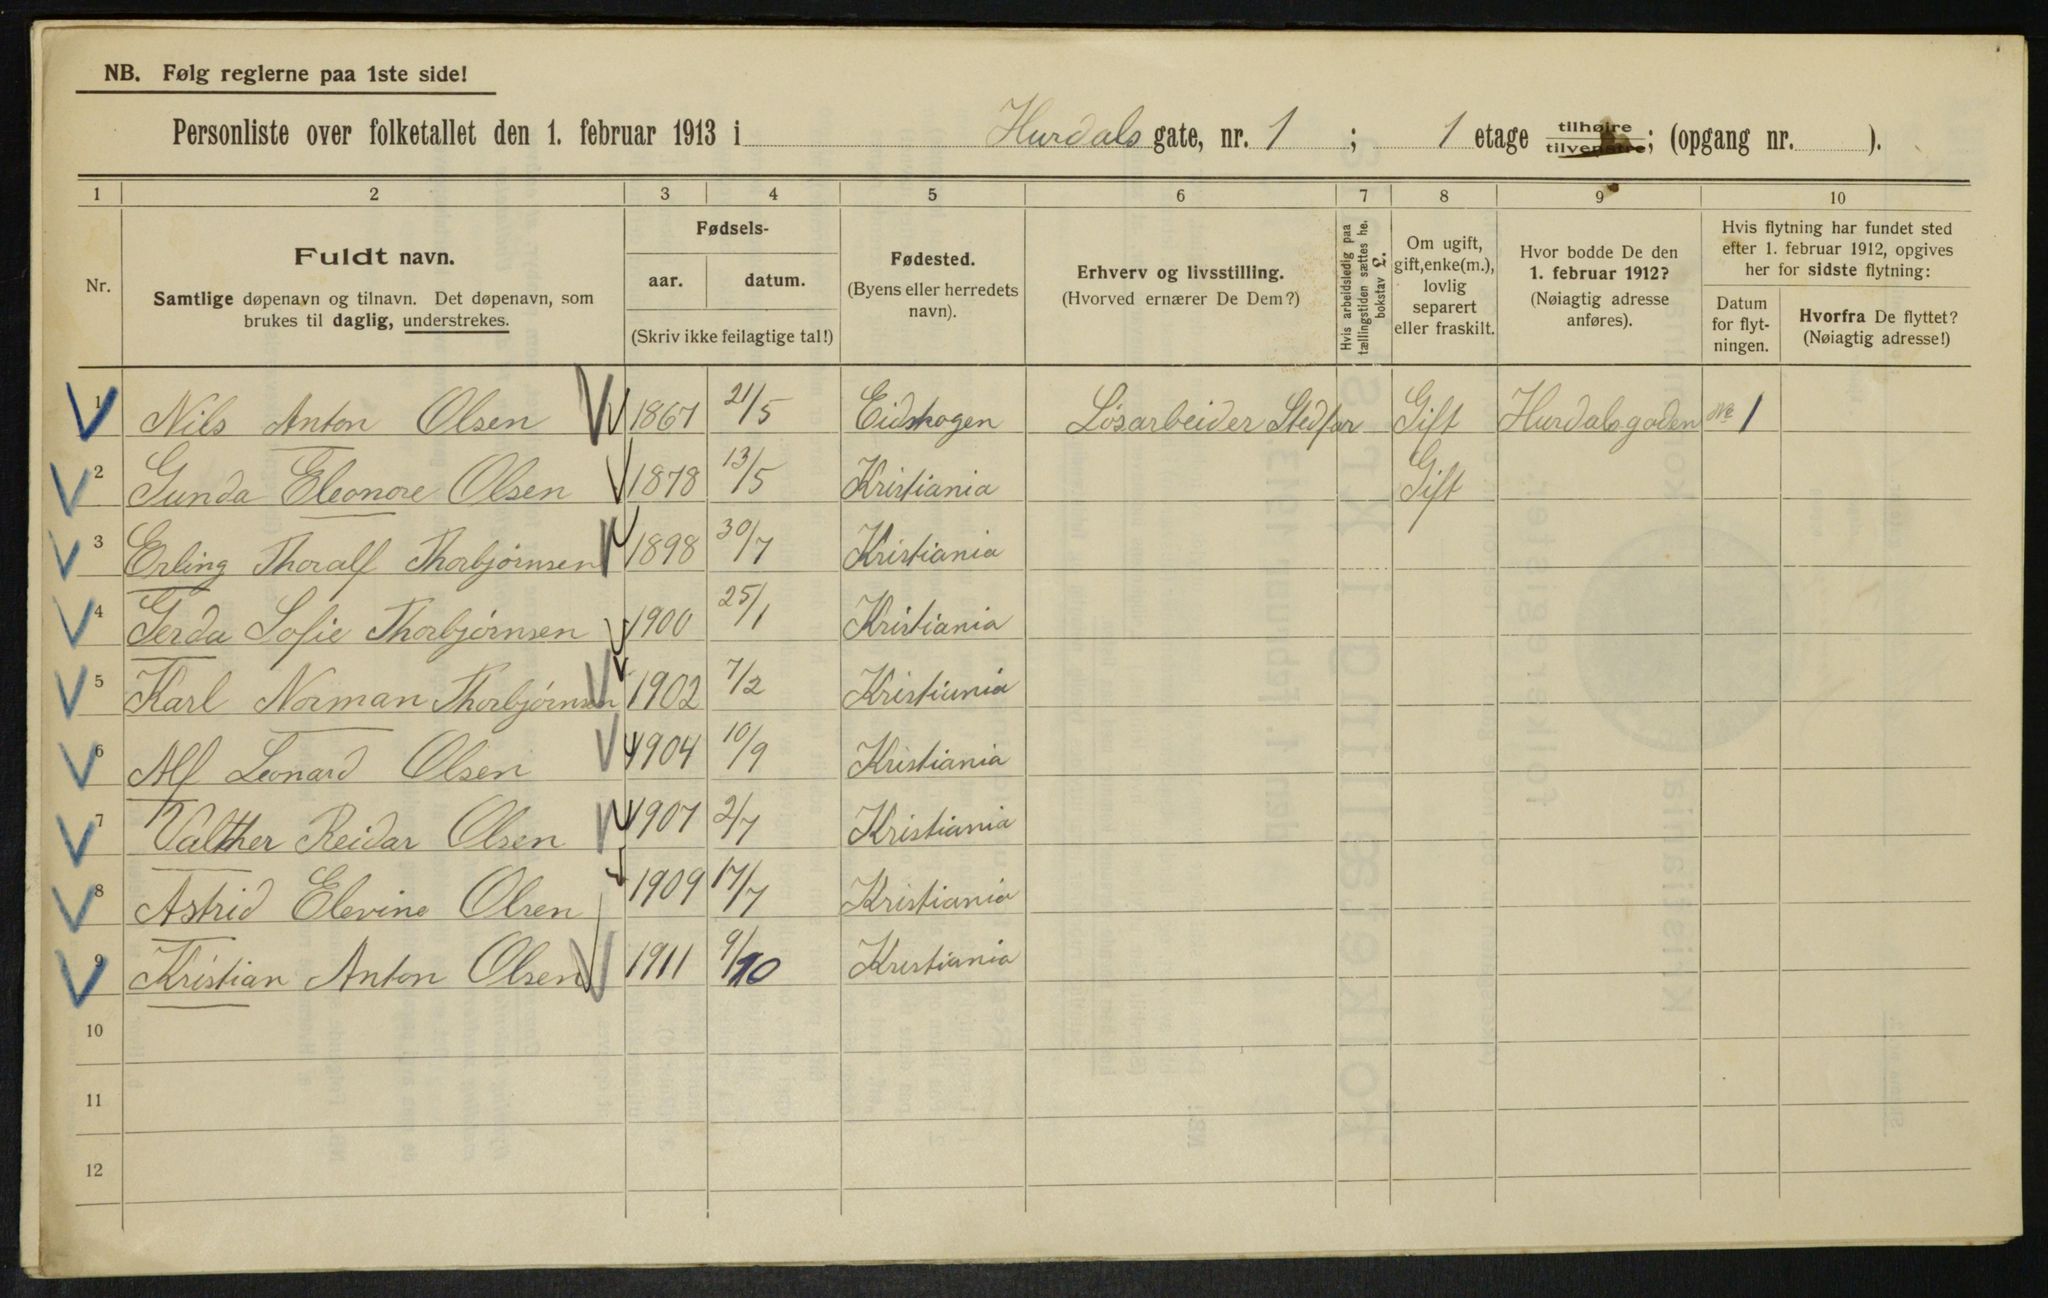 NB. Følg reglerne paa 1ste side!
Personliste over folketallet den 1. februar 1913 i Hurdals gate, nr. 1 ; 1 etage tilhøire tilvenstre; (opgang nr. ).
1 2 3 4 5 6 7 8 9 10
Nr.
Fuldt navn.
Samtlige døpenavn og tilnavn. Det døpenavn, som
brukes til daglig, understrekes.
Fødsels-
aar. datum.
(Skriv ikke feilagtige tal!)
Fødested.
(Byens eller herredets
navn).
Erhverv og livsstilling.
(Hvorved ernærer De Dem?)
Hvis arbeidsledig paa
tællingstiden sættes he.
bokstav L.
Om ugift,
gift,enke(m.),
lovlig
separert
eller fraskilt.
Hvor bodde De den
1. februar 1912?
(Nøiagtig adresse
anføres).
Hvis flytning har fundet sted
efter 1. februar 1912, opgives
her for sidste flytning:
Datum
for flyt-
ningen.
Hvorfra De flyttet?
(Nøiagtig adresse!)
1 Nils Anton Olsen 1867 21/5 Eidskogen Løsarbeider Stedfar Gift Hurdalsgaden No 1
2 Gunda Eleonore Olsen 1878 13/5 Kristiania Gift
3 Erling Thoralf Thorbjørnsen 1898 30/7 Kristiania
4 Gerda Sofie Thorbjørnsen 1900 25/1 Kristiania
5 Karl Norman Thorbjørnsen 1902 7/2 Kristiania
6 Alf Leonard Olsen 1904 10/9 Kristiania
7 Valther Reidar Olsen 1907 2/7 Kristiania
8 Astrid Elevine Olsen 1909 17/7 Kristiania
9 Kristian Anton Olsen 1911 9/10 Kristiania
10
11
12